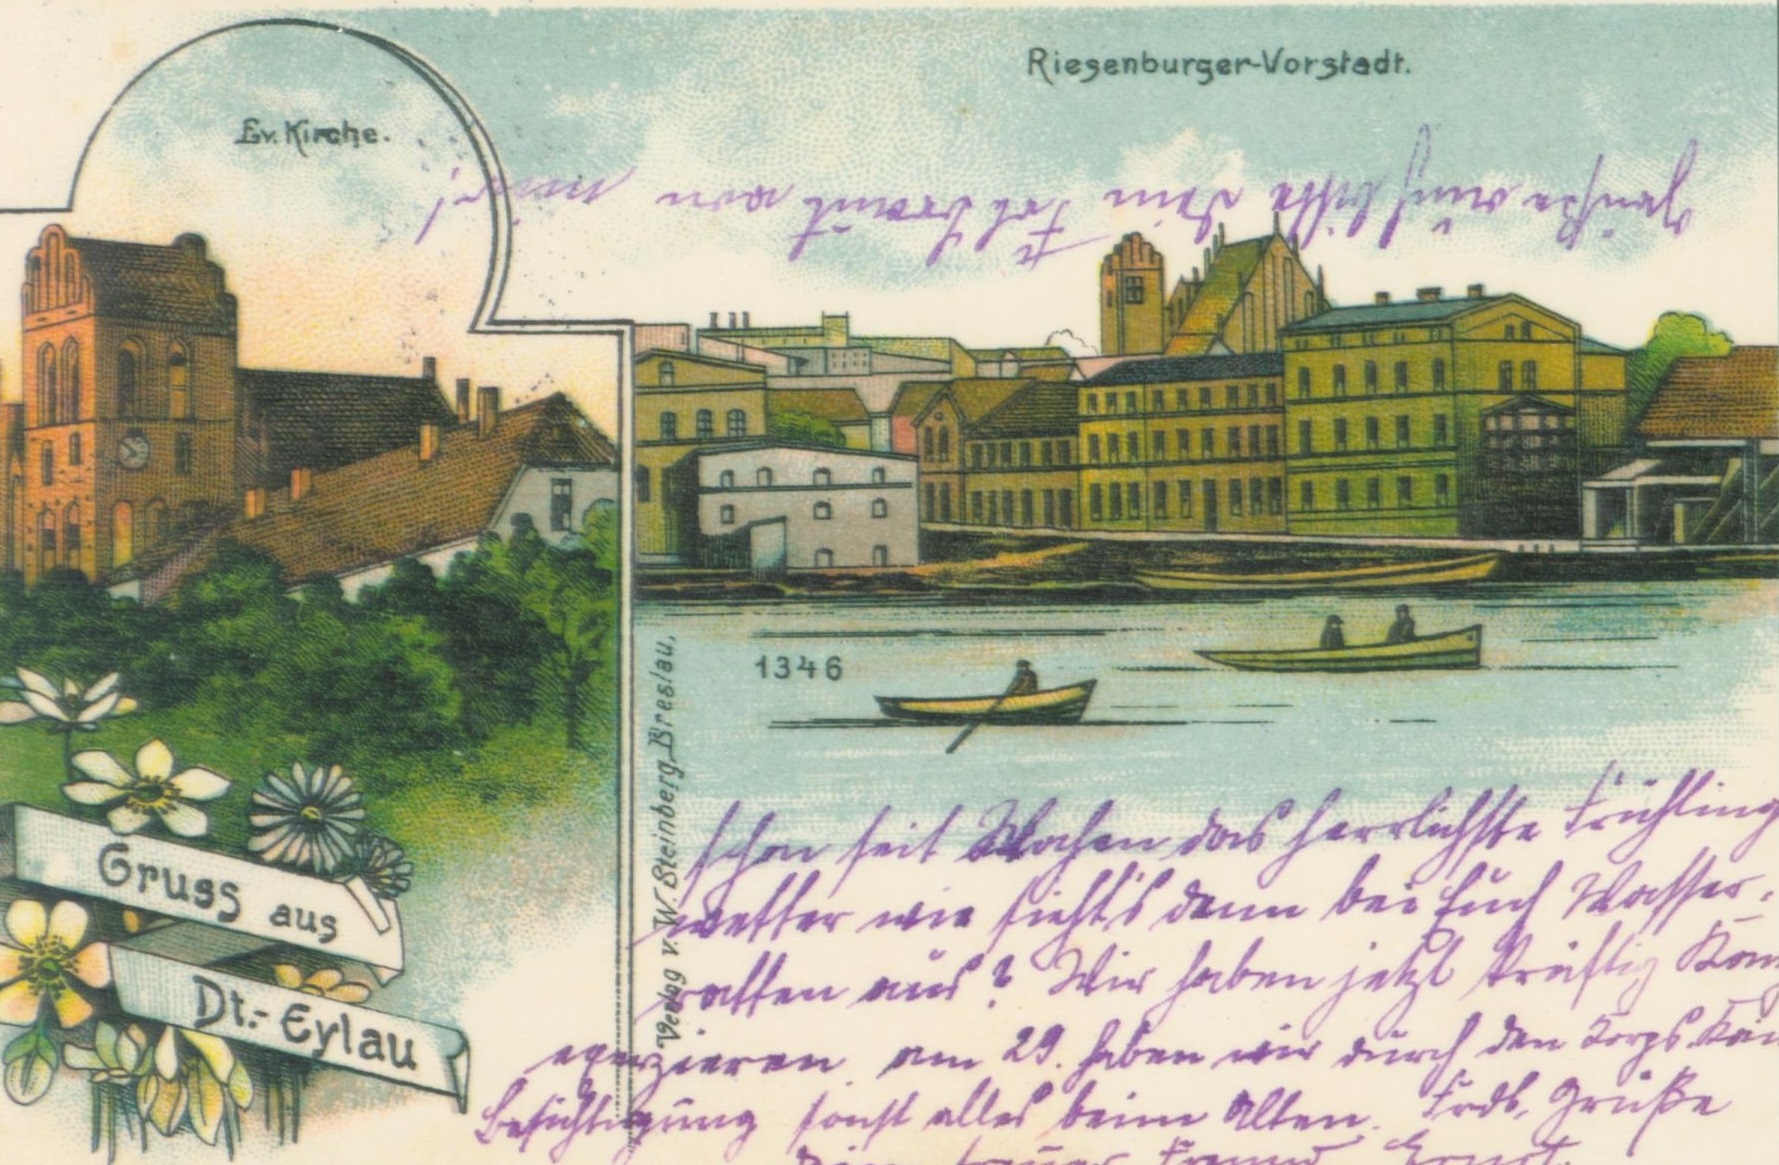 Riesenburger-Vorstadt.
Ev. Kirche.
1346
Verlag v. W. Steinberg, Breslau,
Gruss aus
Dt.- Eylau
schon seit Wochen das herrlichste Frühling
wetter wie sieht's denn bei Euch Wasser-
ratten aus? Wir haben jetzt kräftig Kom
exerzieren am 29. haben wir durch den Korps
Besichtigung sonst alles beim Alten. Grüße
Dein treuer Freund Ernst.